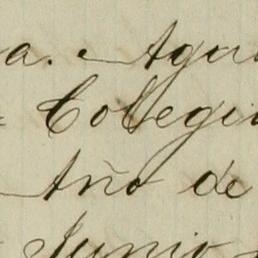 a. Agu
Colegi
Año de
Junio